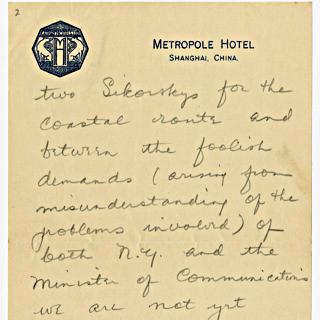 2
METROPOLE HOTEL
SHANGHAI, CHINA.
two Sikorskys for the
coastal route and
between the foolish
demands (arising from
misunderstanding of the
problems involved) of
both N.Y. and the
Minister of Communications
we are not yet